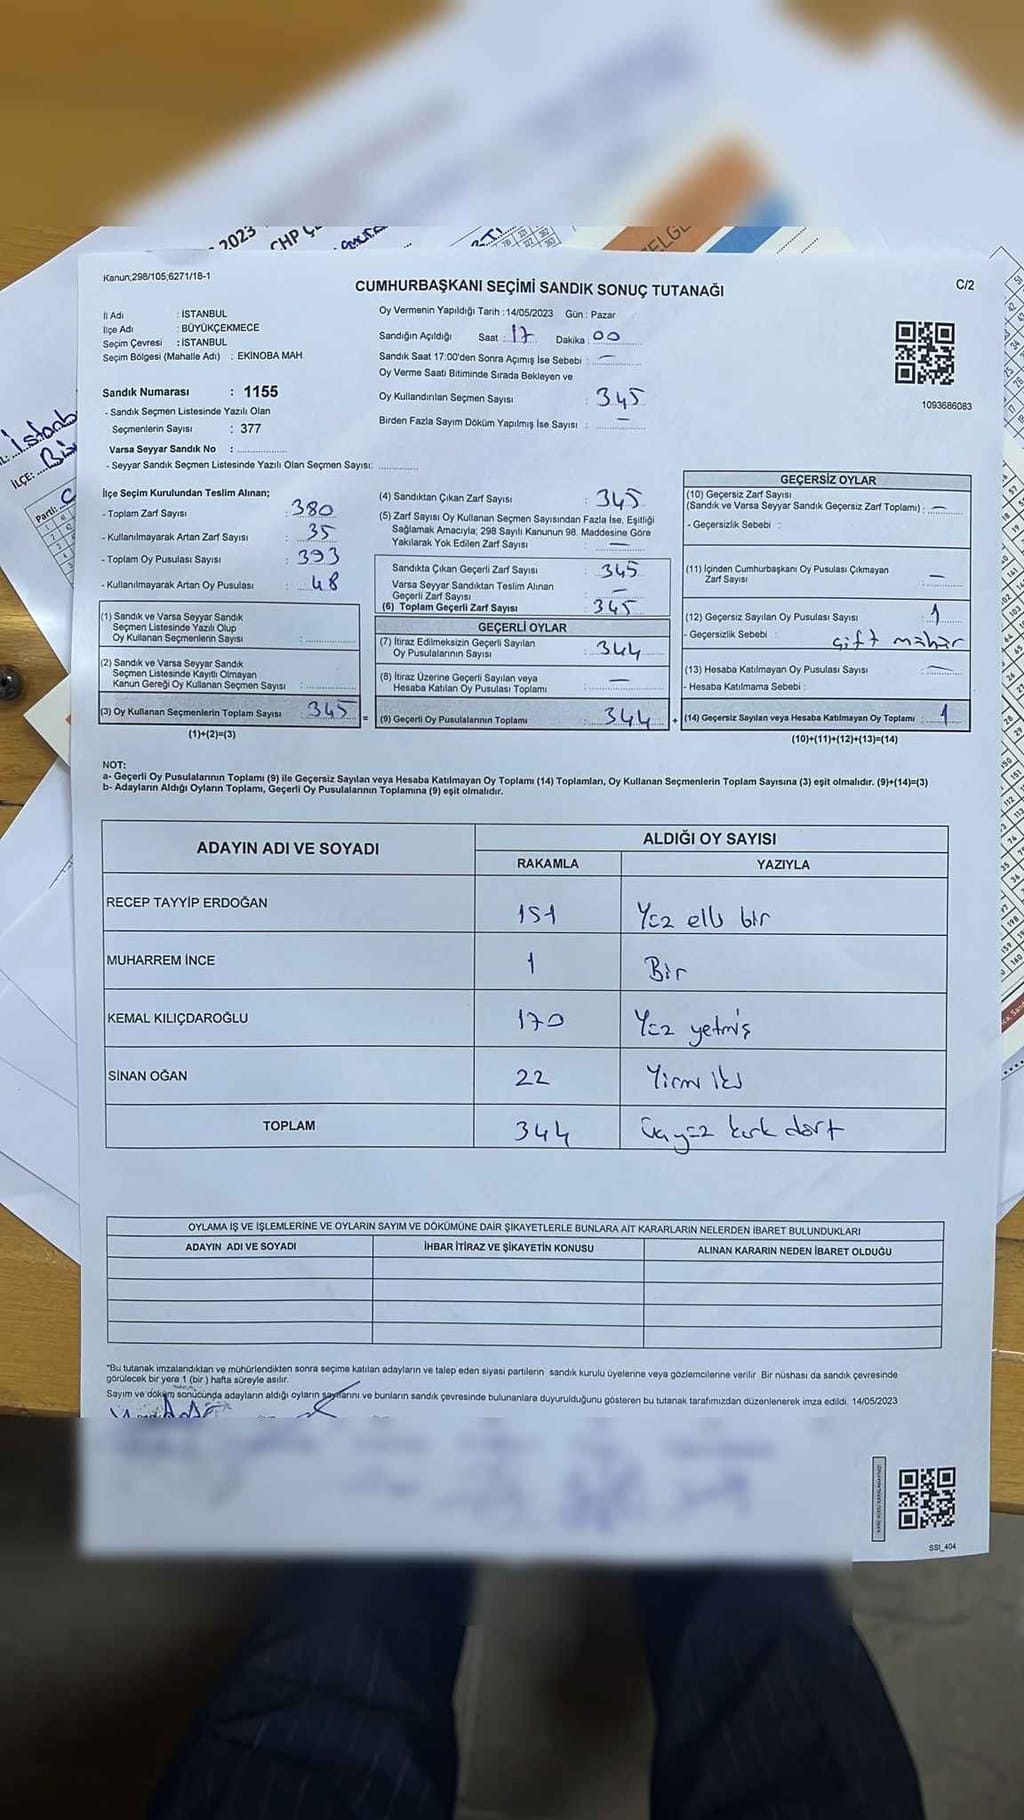 2023
CHP
ELGE
Kanun;298/105;6271/18-1
C/2
CUMHURBAŞKANI SEÇİMİ SANDIK SONUÇ TUTANAĞI
İl Adı : İSTANBUL
İlçe Adı : BÜYÜKÇEKMECE
Seçim Çevresi : İSTANBUL
Seçim Bölgesi (Mahalle Adı) : EKİNOBA MAH
Oy Vermenin Yapıldığı Tarih :14/05/2023 Gün : Pazar
Sandığın Açıldığı Saat : 17 Dakika : 00
Sandık Saat 17:00'den Sonra Açımış İse Sebebi : —
Oy Verme Saati Bitiminde Sırada Bekleyen ve
Oy Kullandırılan Seçmen Sayısı : 345
Birden Fazla Sayım Döküm Yapılmış İse Sayısı : —
1093686083
Sandık Numarası : 1155
- Sandık Seçmen Listesinde Yazılı Olan
Seçmenlerin Sayısı : 377
Varsa Seyyar Sandık No : ..............
- Seyyar Sandık Seçmen Listesinde Yazılı Olan Seçmen Sayısı: ............
İL: İstanb
İLÇE:
Parti:
İlçe Seçim Kurulundan Teslim Alınan;
- Toplam Zarf Sayısı : 380
- Kullanılmayarak Artan Zarf Sayısı : 35
- Toplam Oy Pusulası Sayısı : 393
- Kullanılmayarak Artan Oy Pusulası : 48
(1) Sandık ve Varsa Seyyar Sandık
Seçmen Listesinde Yazılı Olup
Oy Kullanan Seçmenlerin Sayısı :
(2) Sandık ve Varsa Seyyar Sandık
Seçmen Listesinde Kayıtlı Olmayan
Kanun Gereği Oy Kullanan Seçmen Sayısı :
(3) Oy Kullanan Seçmenlerin Toplam Sayısı : 345 =
(1)+(2)=(3)
(4) Sandıktan Çıkan Zarf Sayısı : 345
(5) Zarf Sayısı Oy Kullanan Seçmen Sayısından Fazla İse, Eşitliği
Sağlamak Amacıyla; 298 Sayılı Kanunun 98. Maddesine Göre
Yakılarak Yok Edilen Zarf Sayısı : —
Sandıkta Çıkan Geçerli Zarf Sayısı : 345
Varsa Seyyar Sandıktan Teslim Alınan
Geçerli Zarf Sayısı : —
(6) Toplam Geçerli Zarf Sayısı : 345
GEÇERLİ OYLAR
(7) İtiraz Edilmeksizin Geçerli Sayılan
Oy Pusulalarının Sayısı : 344
(8) İtiraz Üzerine Geçerli Sayılan veya
Hesaba Katılan Oy Pusulası Toplamı : —
(9) Geçerli Oy Pusulalarının Toplamı : 344 +
GEÇERSİZ OYLAR
(10) Geçersiz Zarf Sayısı
(Sandık ve Varsa Seyyar Sandık Geçersiz Zarf Toplamı) : —
- Geçersizlik Sebebi :
(11) İçinden Cumhurbaşkanı Oy Pusulası Çıkmayan
Zarf Sayısı : —
(12) Geçersiz Sayılan Oy Pusulası Sayısı : 1
- Geçersizlik Sebebi : çift mühür
(13) Hesaba Katılmayan Oy Pusulası Sayısı : —
- Hesaba Katılmama Sebebi :
(14) Geçersiz Sayılan veya Hesaba Katılmayan Oy Toplamı : 1
(10)+(11)+(12)+(13)=(14)
NOT:
a- Geçerli Oy Pusulalarının Toplamı (9) ile Geçersiz Sayılan veya Hesaba Katılmayan Oy Toplamı (14) Toplamları, Oy Kullanan Seçmenlerin Toplam Sayısına (3) eşit olmalıdır. (9)+(14)=(3)
b- Adayların Aldığı Oyların Toplamı, Geçerli Oy Pusulalarının Toplamına (9) eşit olmalıdır.
ADAYIN ADI VE SOYADI
ALDIĞI OY SAYISI
RAKAMLA YAZIYLA
RECEP TAYYİP ERDOĞAN 151 Yüz elli bir
MUHARREM İNCE 1 Bir
KEMAL KILIÇDAROĞLU 170 Yüz yetmiş
SİNAN OĞAN 22 Yirmi iki
TOPLAM 344 Üçyüz kırk dört
OYLAMA İŞ VE İŞLEMLERİNE VE OYLARIN SAYIM VE DÖKÜMÜNE DAİR ŞİKAYETLERLE BUNLARA AİT KARARLARIN NELERDEN İBARET BULUNDUKLARI
ADAYIN ADI VE SOYADI İHBAR İTİRAZ VE ŞİKAYETİN KONUSU ALINAN KARARIN NEDEN İBARET OLDUĞU
"Bu tutanak imzalandıktan ve mühürlendikten sonra seçime katılan adayların ve talep eden siyasi partilerin sandık kurulu üyelerine veya gözlemcilerine verilir. Bir nüshası da sandık çevresinde
görülecek bir yere 1 (bir) hafta süreyle asılır.
Sayım ve döküm sonucunda adayların aldığı oyların sayılarını ve bunların sandık çevresinde bulunanlara duyurulduğunu gösteren bu tutanak tarafımızdan düzenlenerek imza edildi. 14/05/2023
SSI_404